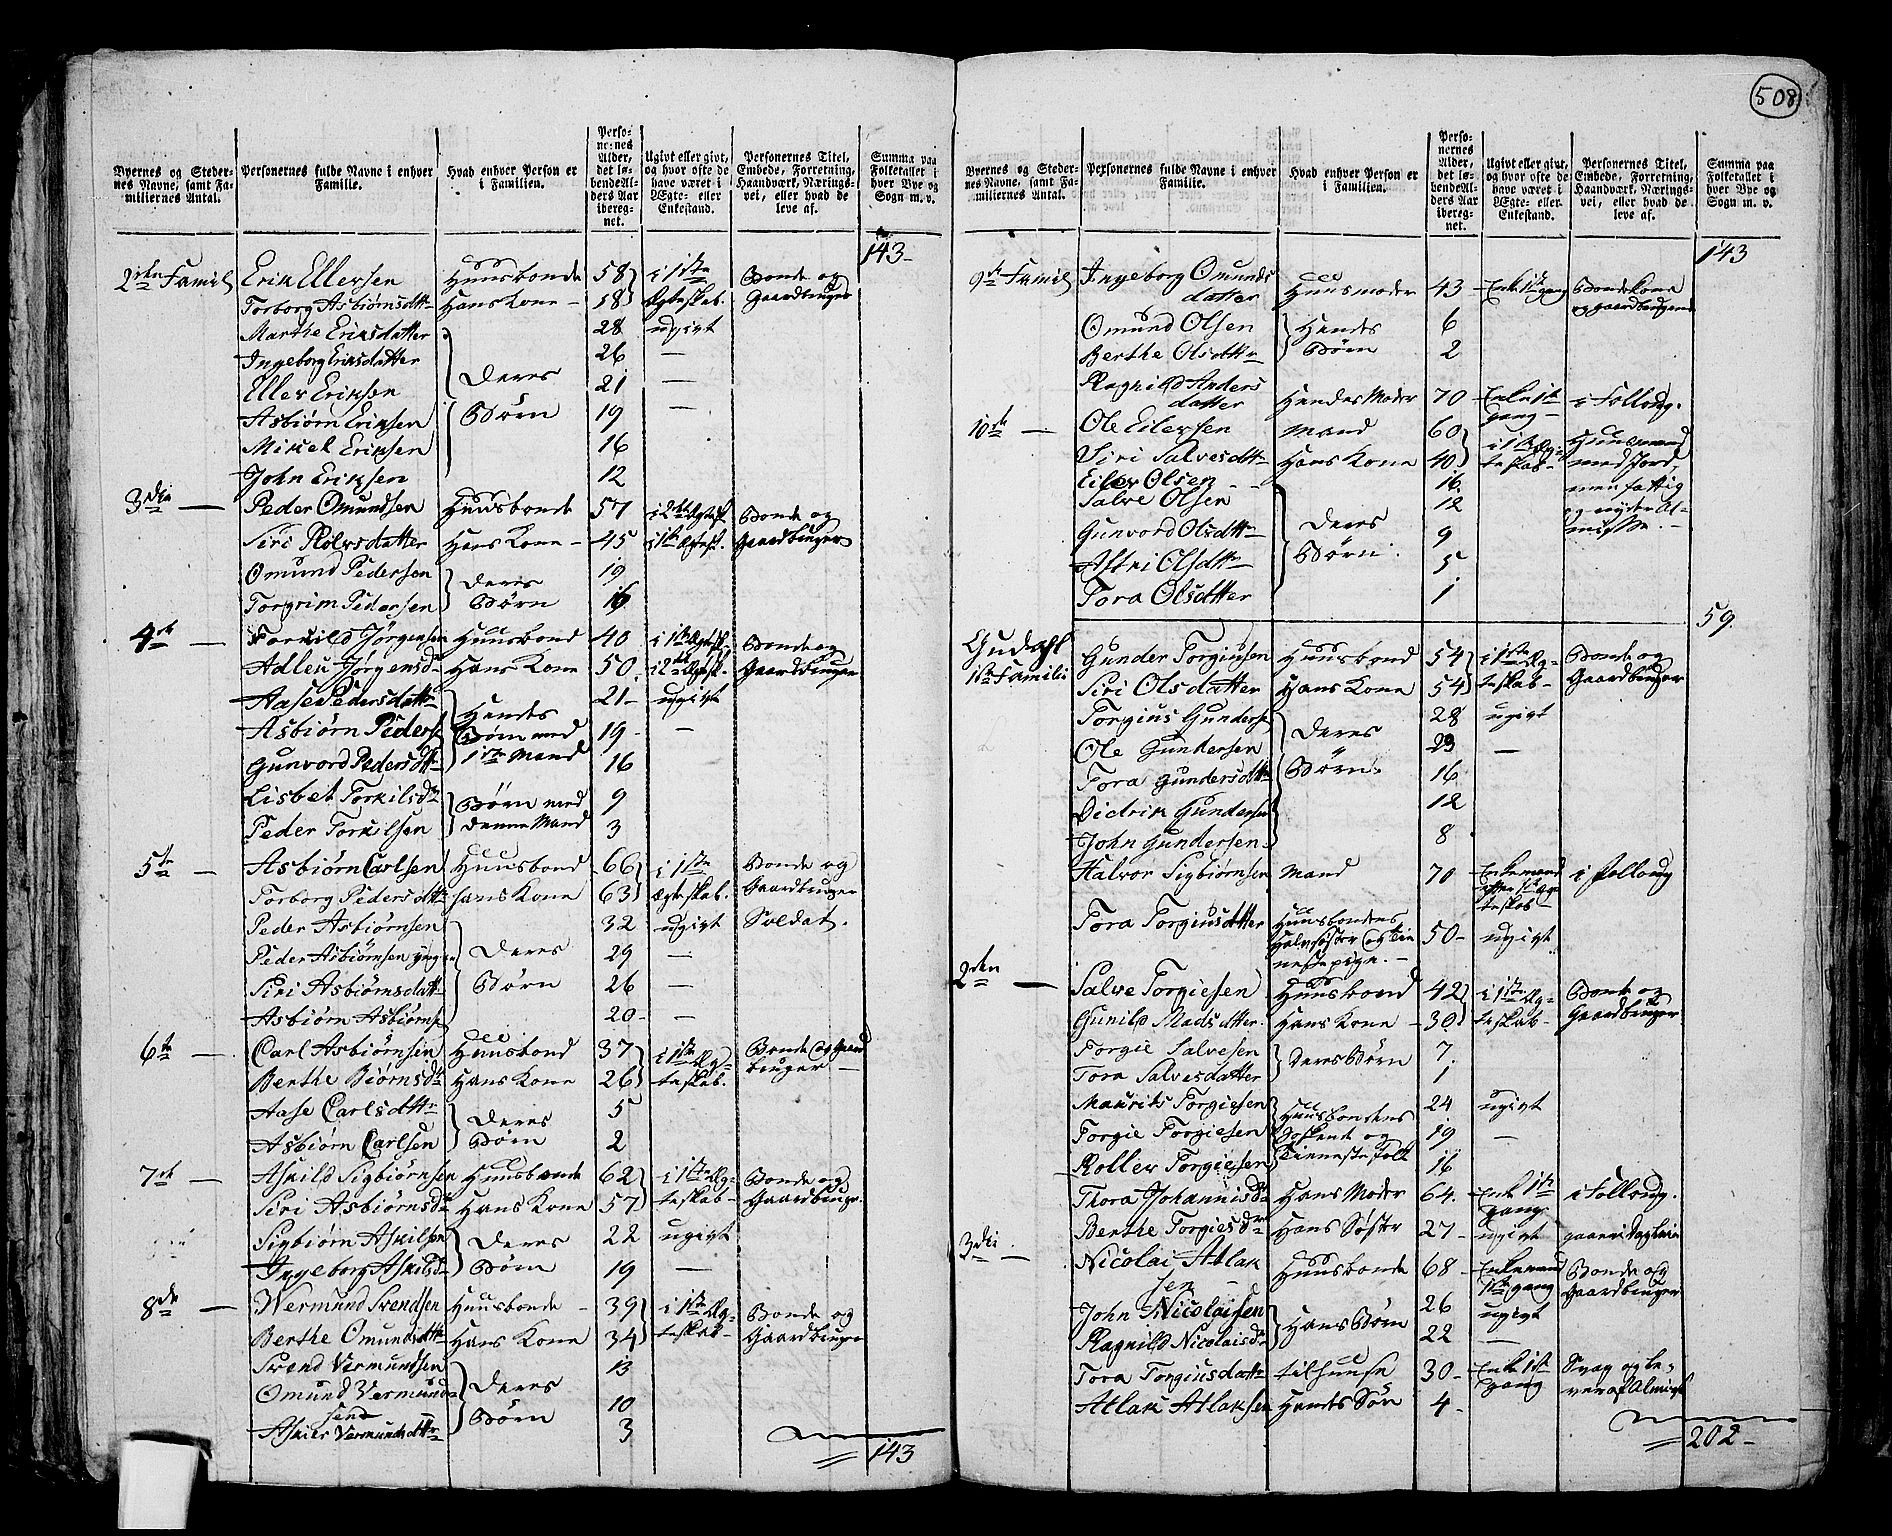 508
Byernes og Steder-
nes Navne, samt Fa-
miliernes Antal.
Personernes fulde Navne i enhver
Familie.
Hvad enhver Person er
i Familien.
Perso-
nernes
Alder,
det lø-
bende Al-
ders Aar
ibereg-
net.
Ugivt eller givt,
og hvor ofte de
have været i
Ægte- eller
Enkestand.
Personernes Titel,
Embede, Forretning,
Haandværk, Nærings-
vei, eller hvad de
leve af.
Summa paa
Folketallet i
hver Bye og
Sogn m. v.
143-
2den Famil Erik Ellersen Huusbonde 58 i 1ste Bonde og
Torborg Asbiørnsdttr Hans Kone - 18 Ægteskab. Gaardbruger
Marthe Eriksdatter 28 ugivt
Ingeborg Eriksdatter 26 —
Eller Eriksen Deres 21 —
Asbiørn Eriksen Børn 19 —
Mikel Eriksen 16
John Eriksen 12
3die — Peder Omundsen Huusbonde 57 i 2det Ægtesk. Bonde og
Siri Rolvsdatter Hans Kone - 45 i 1ste Ægtesk. Gaardbruger
Omund Pedersen Deres 19
Torgrim Pedersen Børn 16
4de — Torkild Jørgensen Huusbond 40 i 1ste Ægtesk. Bonde og
Adleu Jørgensdr Hans Kone 50. i 2det Ægtesk. Gaardbruger
Aase Pedersdattr Hendes 21- ugivt
Asbiørn Peders Børn med 19- —
Gunvord Pedersdttr 1ste Mand 16
Lisbet Torkilsdr Børn med 9
Peder Torkilsen denne Mand 3
5te — Asbiørn Carlsen Huusbond 66 i 1ste Bonde og
Torborg Pedersdttr Hans Kone 63 Ægteskab. Gaardbruger
Peder Asbiørnsen 32 ugivt Soldat.
Peder Asbiørnsen yngre Deres 29 —
Siri Asbiørnsdattr Børn 26 —
Asbiørn Asbiørns 20- —
6te — Carl Asbiørnsen Huusbond 37 i 1ste Æg- Bonde og Gaard
Berthe Biørnsdr Hans Kone 26 teskab. bruger —
Aase Carlsdttr Deres 5
Asbiørn Carlsen Børn 2
7de — Askild Sigbiørnsen Huusbonde 62 i 1ste Æg- Bonde og
Siri Asbiørnsdr Hans Kone 57 teskab- Gaardbruger
Sigbiørn Askilsen Deres 22 ugivt
Ingeborg Askilsdr Børn 19 —
8de — Wermund Svendsen Huusbonde - 39 i 1ste Æg- Bonde og
Berthe Omundsdttr Hans Kone 34 teskab- Gaardbruger
Svend Vermundsen 13
Omund Vermund- Deres
sen Børn 10
Vermundsdttr 3
143
Byernes og Steder-
nes Navne, samt Fa-
miliernes Antal.
Personernes fulde Navne i enhver
Familie.
Hvad enhver Person er
i Familien.
Perso-
nernes
Alder,
det lø-
bende Al-
ders Aar
ibereg-
net.
Ugivt eller givt,
og hvor ofte de
have været i
Ægte- eller
Enkestand.
Personernes Titel,
Embede, Forretning,
Haandværk, Nærings-
vei, eller hvad de
leve af.
Summa paa
Folketallet i
hver Bye og
Sogn m. v.
143
9de Famil Ingeborg Omunds
datter Huusmoder 43 Enke 1ste gang Bondekone
og gaardbruger
Omund Olsen Hendes 6
Berthe Olsdttr Børn 2
Ragnild Anders
datter Hendes Moder 70 Enke 1ste gang- i Folloug.
10de — Ole Eilersen Mand 60 i 1ste Æg- Huusmand
Siri Salvesdttr Hans Kone 40 teskab- med Jord,
Eiler Olsen - - 16 men fattig
Salve Olsen 12 og nyder Al-
Gunvord Olsdttr Deres 9 misse. -
Astri Olsdttr Børn. 5
Tora Olsdatter 1
59.
Gudahl
1ste Familie Gunder Torgiusen Huusbond 54 i 1ste Æg- Bonde og
Siri Olsdatter Hans Kone 54 teskab- Gaardbruger
Torgius Gunders 28 ugivt
Ole Gundersen Deres 23 —
Tora Gundersdttr Børn. 16
Didrik Gundersen 12
John Gundersen 8
Halvor Sigbiørnsen Mand 70 Enkemand i Folloug
efter 1ste Æg
teskab-
Tora Torgiusdatter Huusbondens
Halvsøster og tie 50- ugivt
nestepige. -
2den — Salve Torgiesen Huusbond 42 i 1ste Æg- Bonde og
Gunild Madsdatter. Hans Kone - 30 teskab- Gaardbruger
Torgie Salvesen Deres Børn 7.
Tora Salvesdatter 1
Maurits Torgiesen Huusbondens 24 ugivt
Torgie Torgiesen Søskende og 19 —
Roller Torgiesen Tienestefolk 16
Thora Johannisdr Hans Moder 64. Enke 1ste gang- i Folloug.
Berthe Torgiesdr Hans Søster 27- ugivt gaar i Dagleie
3die — Nicolai Atlak
sen Huusbonde 68- Enkemand Bonde og
1ste gang Gaardbruger
John Nicolaisen Hans Børn 26 ugivt
Ragnild Nicolaisdr 22 —
Tora Torgiusdattr tilhuuse 30- Enke 1ste gang Svag og le-
ver af Almisse
Atlak Atlaksen Hendes Søn 4-
202-